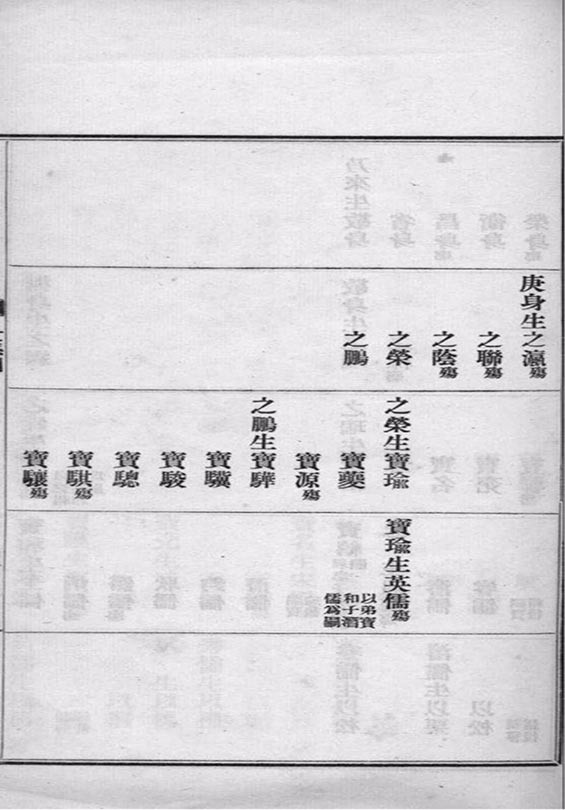 庚身生之瀛殤
之聯殤
之陰殤
之榮
之鵬
之榮生寶瑜
寶夔
寶源殤
之鵬生寶驊
寶驥
寶駿
寶驄
寶騏殤
寶驤殤
寶瑜生英儒殤
以弟寶
和子滔
儒為嗣